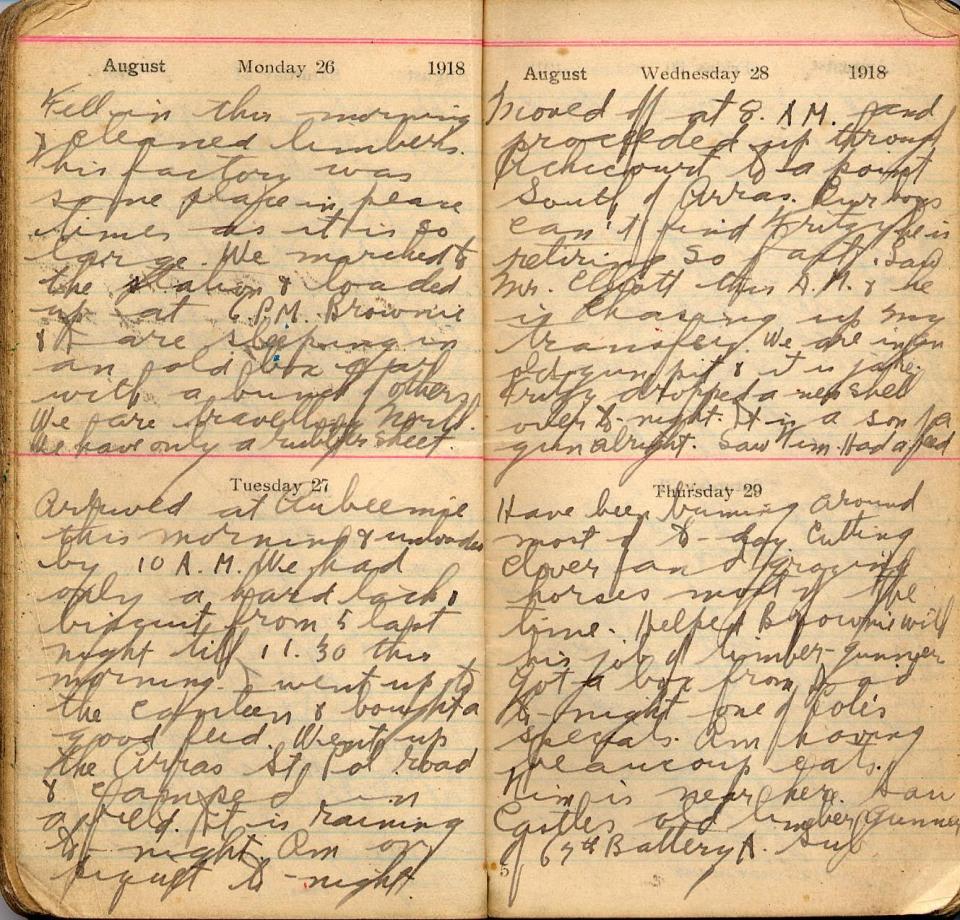 August Monday 26 1918
Fell in this morning
& cleaned limbers.
This factory was
some place in peace
times as it is so
large. We marched to
the station & loaded
up at 6 P.M. Brownie
& I are sleeping in
an old box car
with a bunch of others.
We are travelling North.
We have only a rubber sheet.
Tuesday 27
Arrived at Aubeemie
this morning & unloaded
by 10 A.M. We had
only a hard tack
biscuit from 5 last
night till 11.30 this
morning. I went up to
the canteen & bought a
good feed. Went up
the Arras St. Pol road
& camped in
a field. It is raining
to-night. Am on
piquet to-night
August Wednesday 28 1918
Moved off at 8. A.M. and
proceeded up through
Achicourt to a point
South of Arras. Our boys
can't find Fritzy he is
retiring so fast. Saw
Mr. Elliott this A.M. & he
is chasing up my
transfer. We are in an
old gun pit & it is jake.
Fritzy dropped a new shell
over to-night. It is a son of a
gun alright. Saw Jim. Had a feed
Thursday 29
Have been bumming around
most of to-day cutting
clover and grazing
horses most of the
time. Helped Brownie with
his job of limber-gunner
Got a box from Dad
to-night one of Cole's
specials. Am having
beaucoup eats.
Jim is near here. Saw
Castles old limber gunner
of 67th Battery A. Sub
5